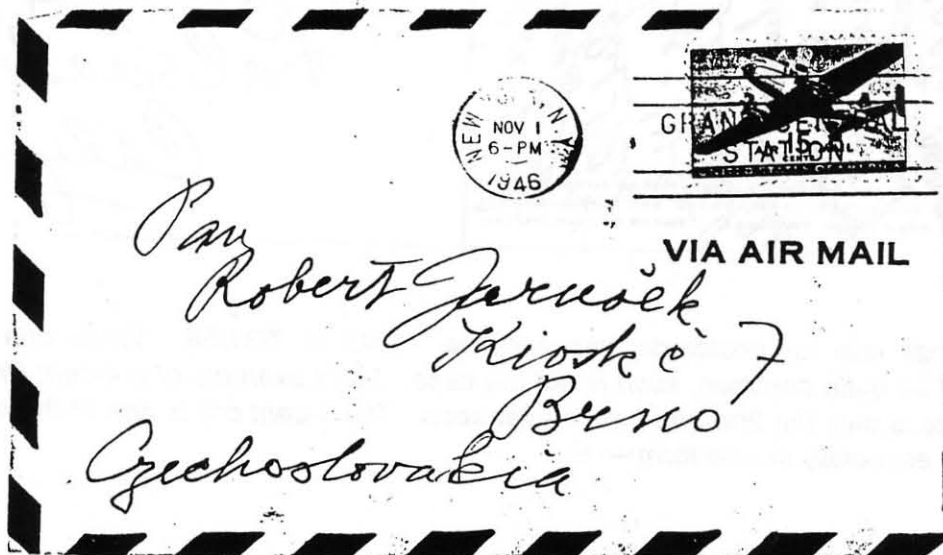 NEW YORK, N.Y.
NOV 1
6-PM
1946
GRAND CENTRAL
STATION
VIA AIR MAIL
Pan
Robert Jarušek
Kiosk č 7
Brno
Czechoslovakia